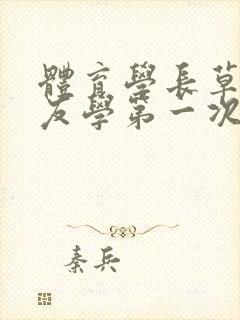 體育學長草
友學第一次
秦兵